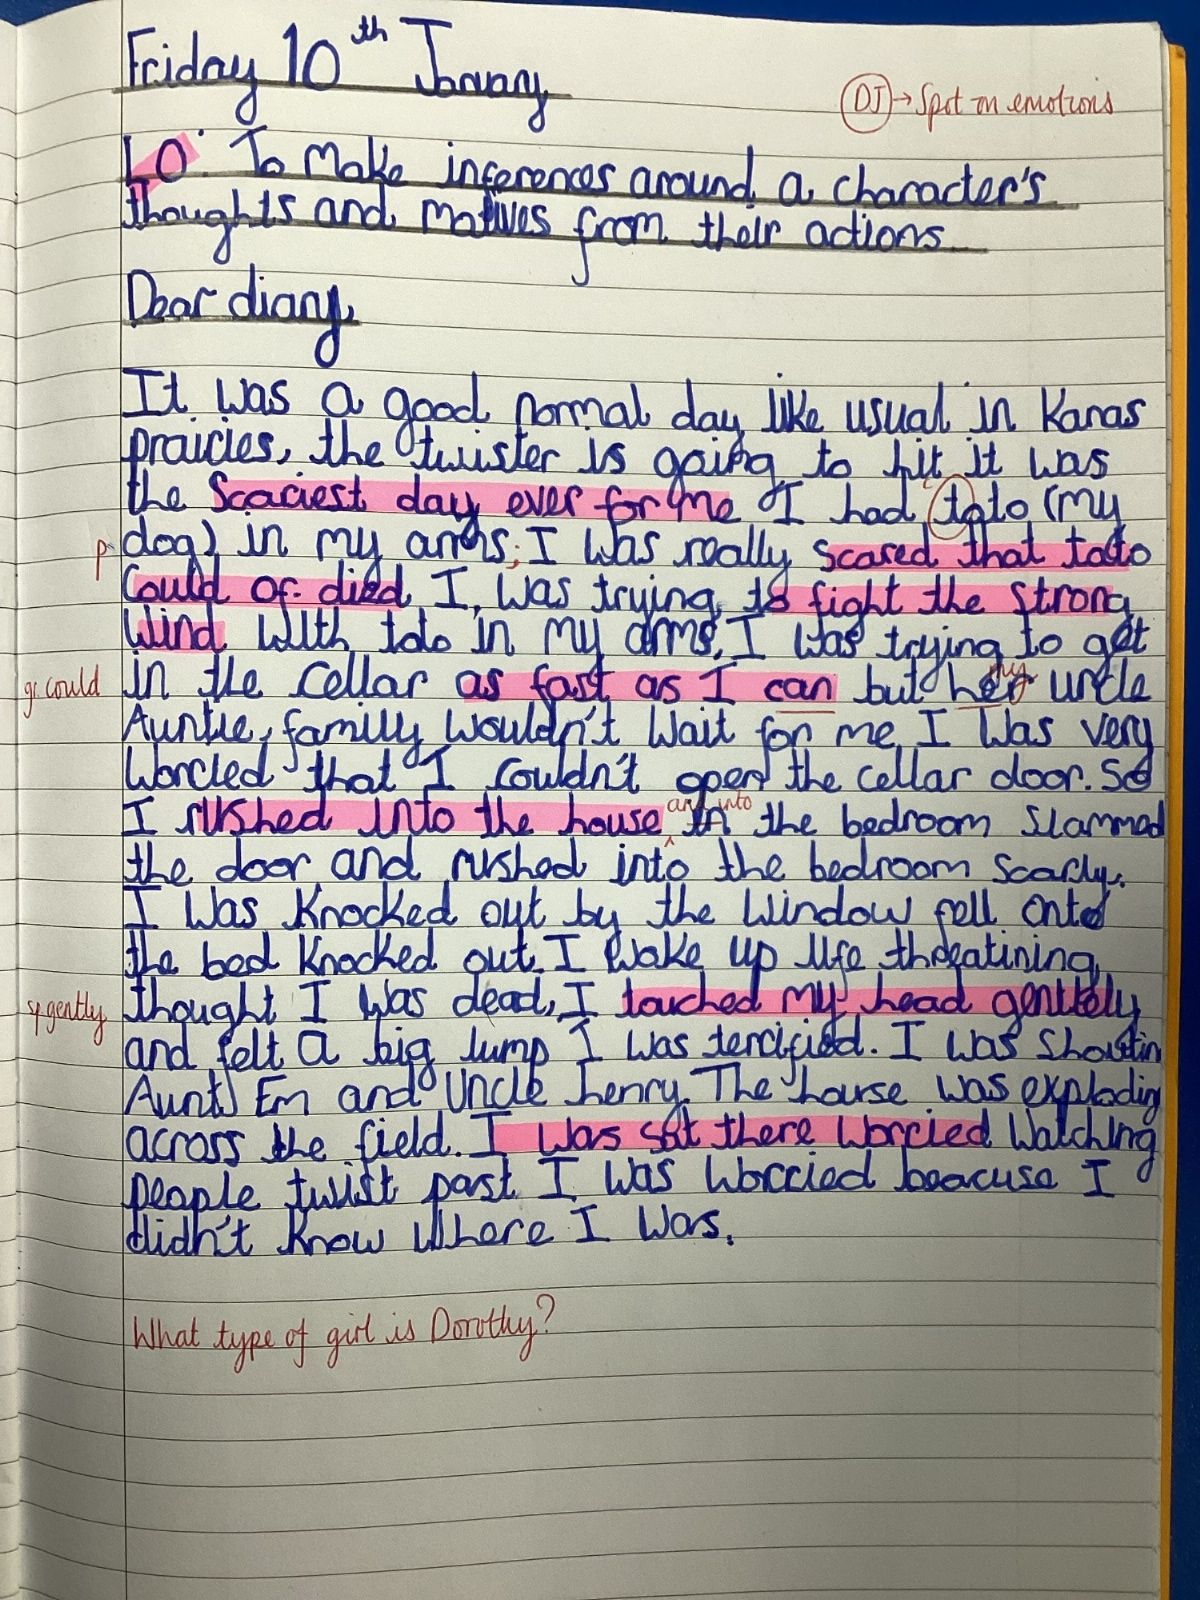 Friday 10th January
DJ → Spot on emotions
LO: To make inferences around a character's
thoughts and motives from their actions
Dear diary,
It was a good normal day like usual in Kanas
praicies, the twister is going to hit it was
the scaciest day ever for me I had toto (my
p dog) in my arms; I was really scared that toto
could of died I, was trying to fight the strong
wind with toto in my arms, I was trying to get
gr could in the cellar as fast as I can but her my uncle
Auntie, family wouldn't wait for me, I was very
worcied that I couldn't open the cellar door. So
I rushed into the house and into in the bedroom slammed
the door and rushed into the bedroom scacly.
I was knocked out by the window fell onto
the bed knocked out. I wake up life threatining
sp gently thought I was dead, I touched my head gentlely
and felt a big lump I was tercified. I was shoutin
Aunt Em and Uncle henry. The house was explodig
across the field. I was sat there worcied watching
people twist past I was worccied beacuse I
didn't know where I was.
What type of girl is Dorothy?